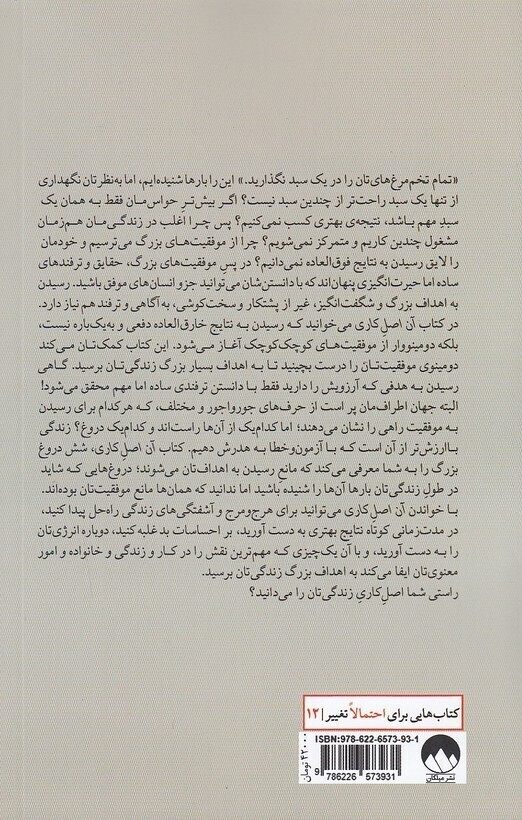 «تمام تخم‌مرغ‌های‌تان را در یک سبد نگذارید.» این را بارها شنیده‌ایم، اما به‌نظرتان نگهداری
از تنها یک سبد راحت‌تر از چندین سبد نیست؟ اگر بیش‌ترِ حواس‌مان فقط به همان یک
سبدِ مهم باشد، نتیجه‌ی بهتری کسب نمی‌کنیم؟ پس چرا اغلب در زندگی‌مان هم‌زمان
مشغول چندین کاریم و متمرکز نمی‌شویم؟ چرا از موفقیت‌های بزرگ می‌ترسیم و خودمان
را لایق رسیدن به نتایج فوق‌العاده نمی‌دانیم؟ در پسِ موفقیت‌های بزرگ، حقایق و ترفندهای
ساده اما حیرت‌انگیزی پنهان‌اند که با دانستن‌شان می‌توانید جزو انسان‌های موفق باشید. رسیدن
به اهداف بزرگ و شگفت‌انگیز، غیر از پشتکار و سخت‌کوشی، به آگاهی و ترفند هم نیاز دارد.
در کتاب آن اصلِ کاری می‌خوانید که رسیدن به نتایج خارق‌العاده دفعی و به‌یک‌باره نیست،
بلکه دومینووار از موفقیت‌های کوچک‌کوچک آغاز می‌شود. این کتاب کمک‌تان می‌کند
دومینوی موفقیت‌تان را درست بچینید تا به اهداف بسیار بزرگ زندگی‌تان برسید. گاهی
رسیدن به هدفی که آرزویش را دارید فقط با دانستن ترفندی ساده اما مهم محقق می‌شود!
البته جهان اطراف‌مان پر است از حرف‌های جورواجور و مختلف، که هرکدام برای رسیدن
به موفقیت راهی را نشان می‌دهند؛ اما کدام‌یک از آن‌ها راست‌اند و کدام‌یک دروغ؟ زندگی
باارزش‌تر از آن است که با آزمون‌وخطا به هدرش دهیم. کتاب آن اصلِ کاری، شش دروغ
بزرگ را به شما معرفی می‌کند که مانعِ رسیدن به اهداف‌تان می‌شوند؛ دروغ‌هایی که شاید
در طولِ زندگی‌تان بارها آن‌ها را شنیده باشید اما ندانید که همان‌ها مانع موفقیت‌تان بوده‌اند.
با خواندن آن اصلِ کاری می‌توانید برای هرج‌ومرج و آشفتگی‌های زندگی راه‌حل پیدا کنید،
در مدت‌زمانی کوتاه نتایج بهتری به دست آورید، بر احساسات بد غلبه کنید، دوباره انرژی‌تان
را به دست آورید، و با آن یک‌چیزی که مهم‌ترین نقش را در کار و زندگی و خانواده و امور
معنوی‌تان ایفا می‌کند به اهداف بزرگ زندگی‌تان برسید.
راستی شما اصلِ کاریِ زندگی‌تان را می‌دانید؟
کتاب‌هایی برای احتمالاً تغییر | ۱۲
ISBN: 978-622-6573-93-1
9 786226 573931
۴۲۰۰۰ تومان
نشر میلکان